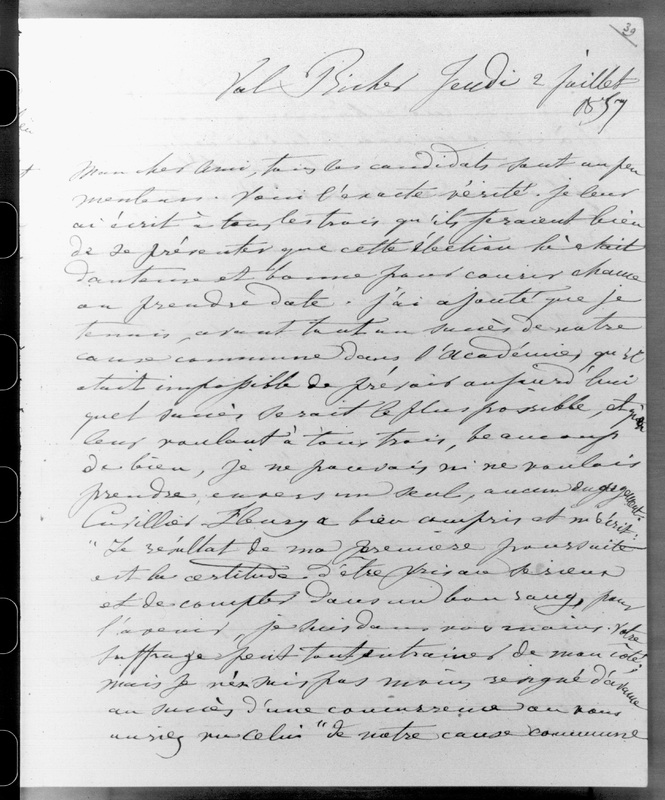 39
Val Richer Jeudi 2 juillet
1857
Mon cher ami, tous les candidats sont un peu
menteurs. Voici l'exacte vérité. Je leur
ai écrit à tous les trois qu'ils feraient bien
de se présenter que cette élection là était
douteuse et bonne pour courir chance
ou prendre date. J'ai ajouté que je
tenais, avant tout au succès de notre
cause commune dans l'Académie, qu'il
était impossible de prévoir aujourd'hui
quel succès serait le plus possible, et que
leur voulant à tous trois, beaucoup
de bien, je ne pouvais ni ne voulais
prendre envers un seul, aucun engagement.
Cuvillier-Fleury a bien compris et m'écrit:
"Le résultat de ma première poursuite
est la certitude d'être pris au sérieux
et de compter dans un bon rang, pour
l'avenir, je suis dans vos mains. Votre
suffrage peut tout entrainer de mon côté,
mais je n'en suis pas moins résigné d'avance
au succès d'une concurrence où vous
auriez vu celui" de notre cause commune